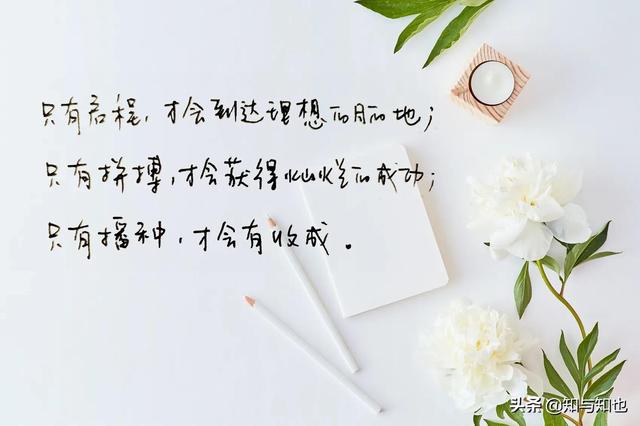 只有启程，才会到达理想的目的地；
只有拼搏，才会获得灿烂的成功；
只有播种，才会有收成。
头条 @知与知也